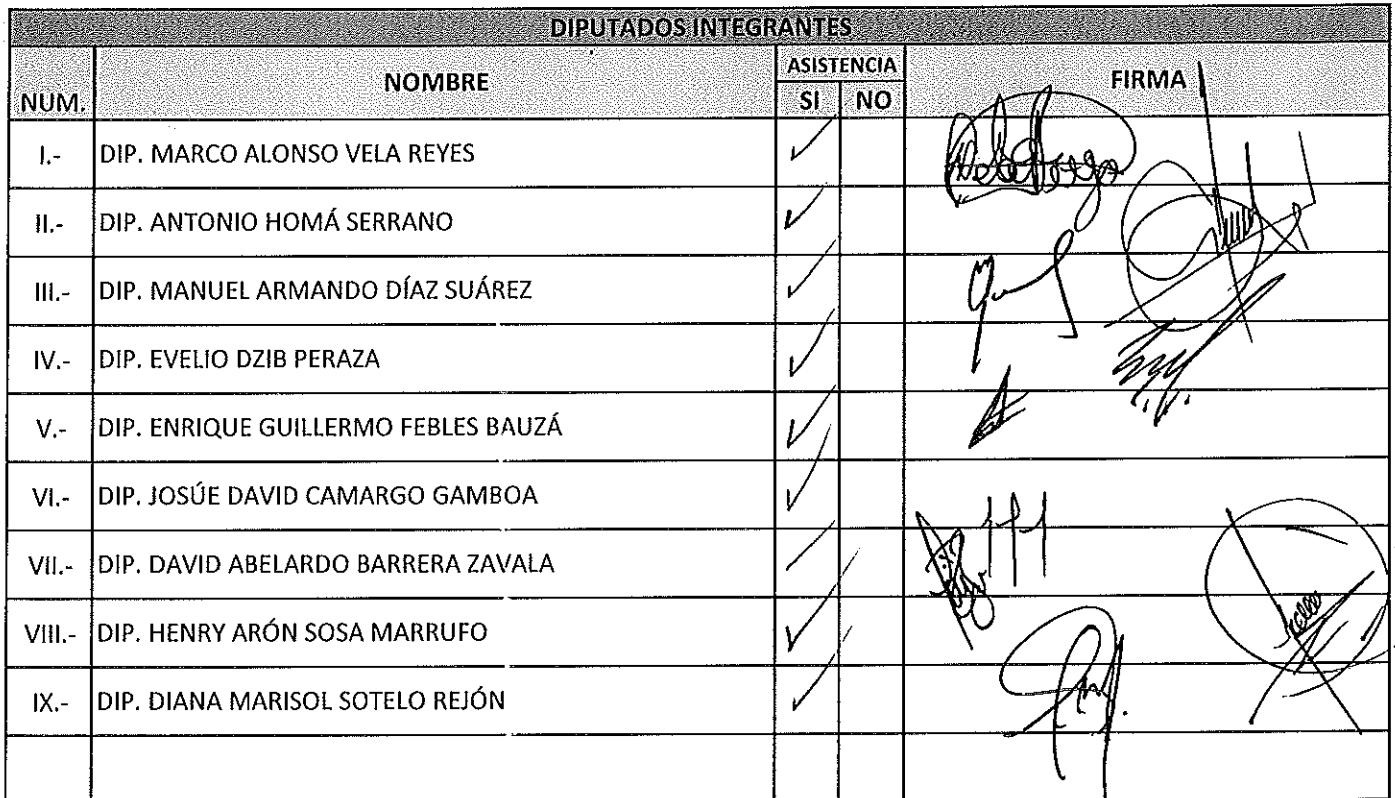 DIPUTADOS INTEGRANTES
NUM. NOMBRE ASISTENCIA FIRMA
SI NO
I.- DIP. MARCO ALONSO VELA REYES
II.- DIP. ANTONIO HOMÁ SERRANO
III.- DIP. MANUEL ARMANDO DÍAZ SUÁREZ
IV.- DIP. EVELIO DZIB PERAZA
V.- DIP. ENRIQUE GUILLERMO FEBLES BAUZÁ
VI.- DIP. JOSÚE DAVID CAMARGO GAMBOA
VII.- DIP. DAVID ABELARDO BARRERA ZAVALA
VIII.- DIP. HENRY ARÓN SOSA MARRUFO
IX.- DIP. DIANA MARISOL SOTELO REJÓN